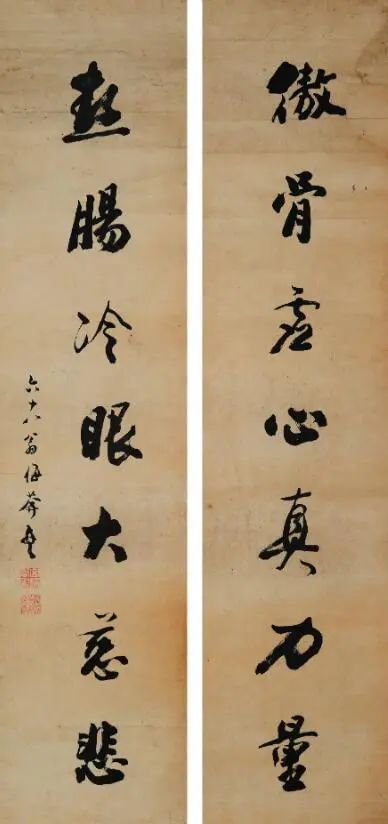 傲骨虛心真力量
熱腸冷眼大慈悲
六十八翁梅葊